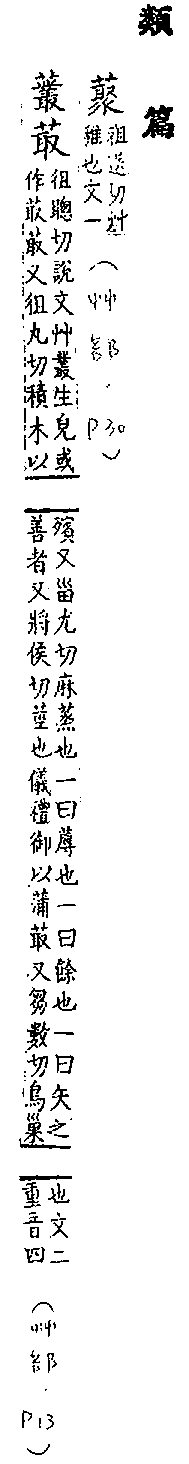 類篇
藂 祖送切艸
雜也文一(艸部.P30)
䕺菆 徂聰切說文艸叢生皃或
作菆菆又徂丸切積木以
殯又甾尤切麻蒸也一曰蓐也一曰餘也一曰矢之
善者又將侯切莖也儀禮御以蒲菆又芻數切鳥巢
也文二
重音四
(艸部.P13)